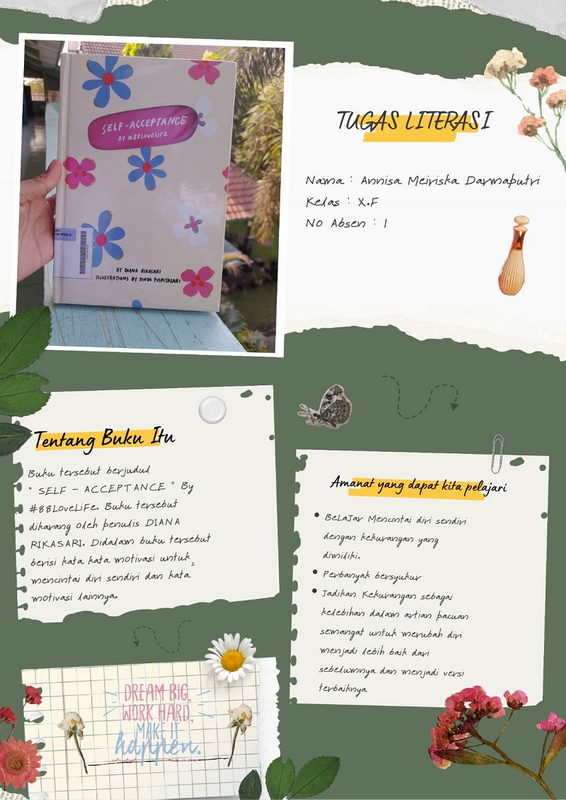 SELF-ACCEPTANCE
BY #88LOVELIFE
BY DIANA RIKASARI
ILLUSTRATIONS BY DINDA PUSPITASARI
TUGAS LITERASI
Nama : Annisa Meiriska Darmaputri
Kelas : X.F
No Absen : 1
Tentang Buku Itu
Buku tersebut berjudul
" SELF - ACCEPTANCE " By
#88LoveLiFe. Buku tersebut
dikarang oleh penulis DIANA
RIKASARI. Didalam buku tersebut
berisi kata kata motivasi untuk
mencintai diri sendiri dan kata
motivasi lainnya.
Amanat yang dapat kita pelajari
• BeLaJar Mencintai diri sendiri
dengan kekurangan yang
dimiliki.
• Perbanyak bersyukur
• Jadikan Kekurangan sebagai
kelebihan dalam artian pacuan
semangat untuk merubah diri
menjadi lebih baik dari
sebelumnya dan menjadi versi
terbaiknya
DREAM BIG,
WORK HARD,
MAKE IT
happen.